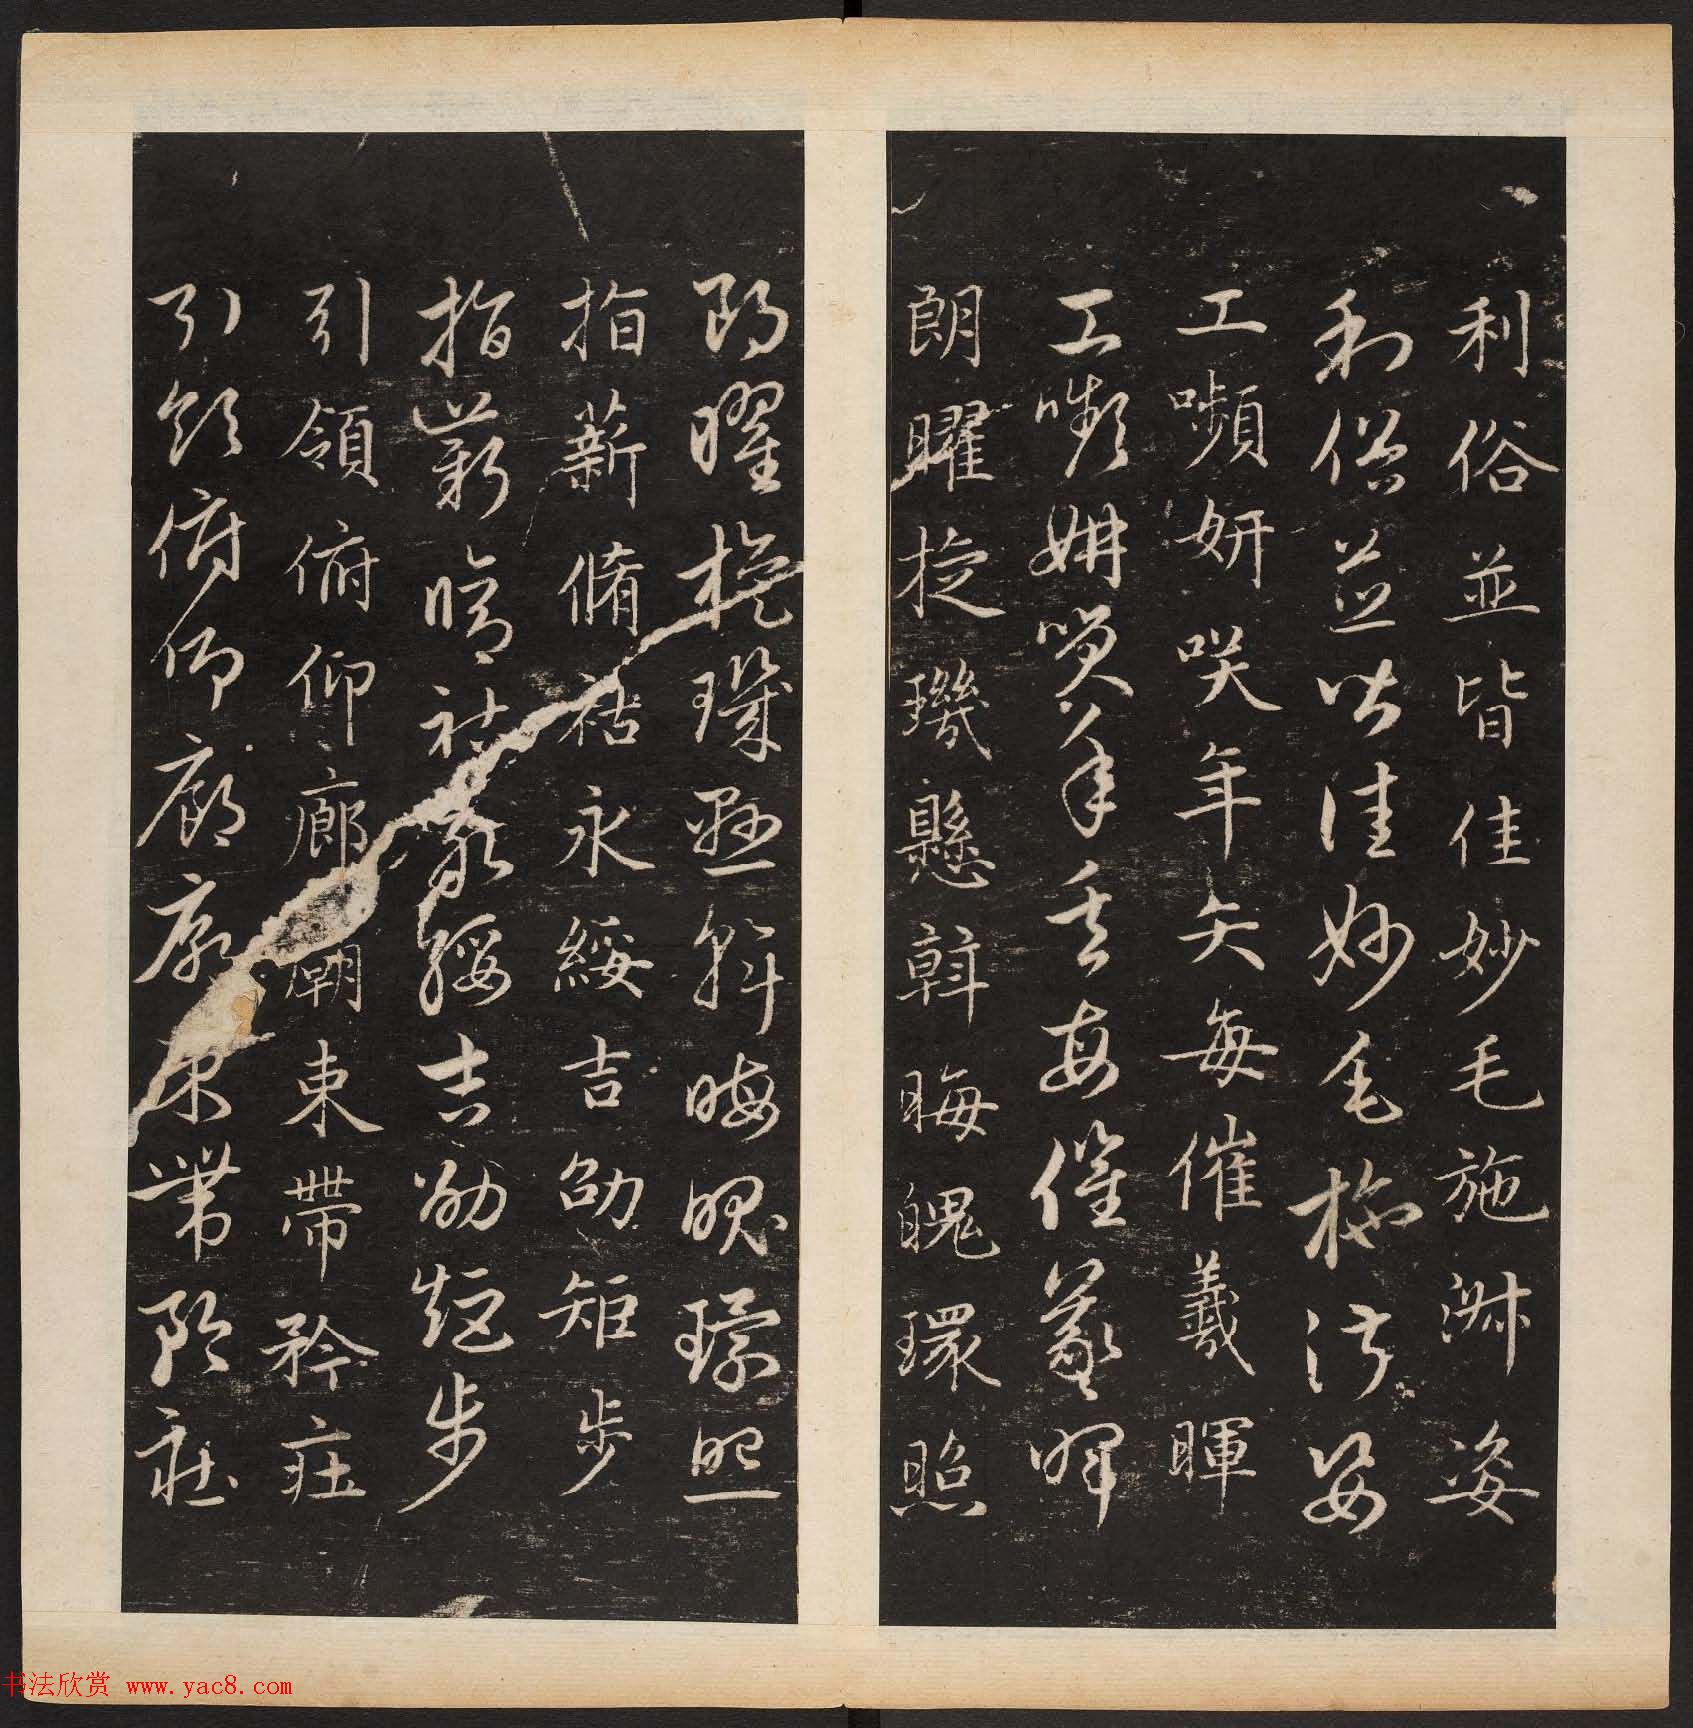 利俗並皆佳妙毛施淑姿
利俗並皆佳妙毛施淑姿
工嚬妍咲年矢每催羲暉
工嚬妍咲年矢每催羲暉
朗曜捉璣懸斡晦魄環照
朗曜捉璣懸斡晦魄環照
指薪脩祜永綏吉劭矩步
指薪脩祜永綏吉劭矩步
引領俯仰廊廟束帶矜莊
引領俯仰廊廟束帶矜莊
书法欣赏 www.yac8.com